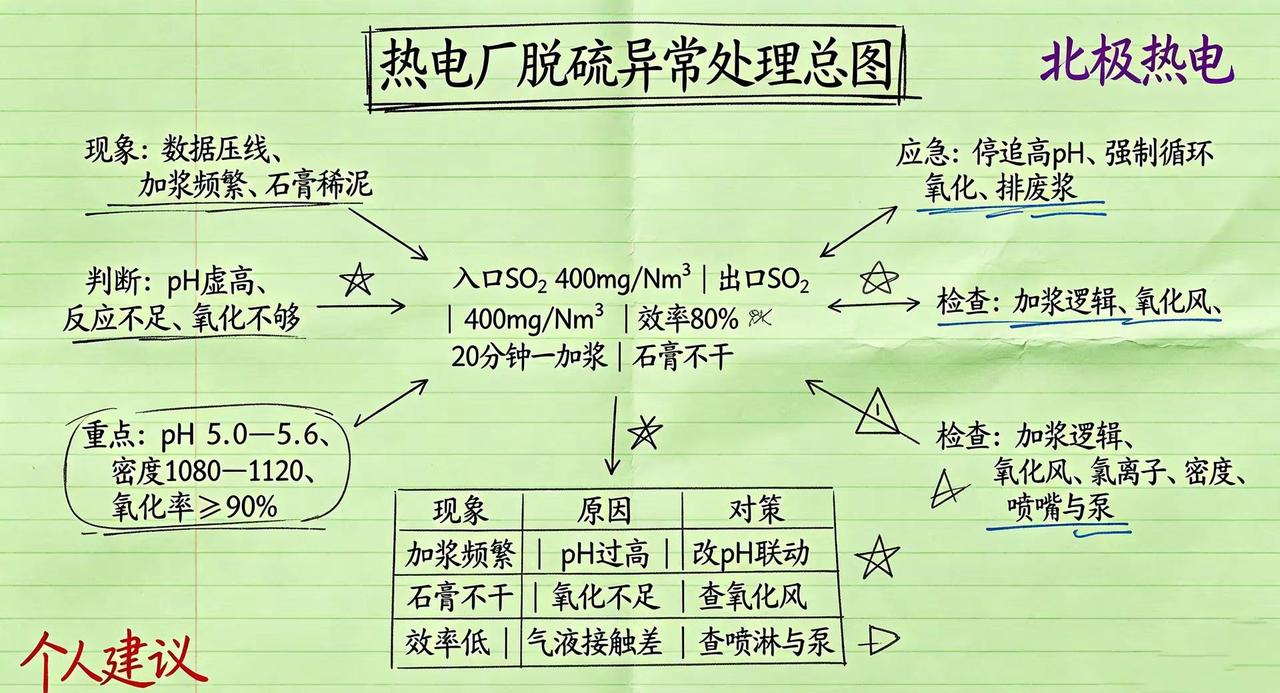 热电厂脱硫异常处理总图
北极热电
现象：数据压线、
加浆频繁、石膏稀泥
应急：停追高pH、强制循环
氧化、排废浆
判断：pH虚高、
反应不足、氧化不够
入口SO₂ 400mg/Nm³ | 出口SO₂
| 400mg/Nm³ | 效率80%
20分钟一加浆 | 石膏不干
检查：加浆逻辑、氧化风、
重点：pH 5.0—5.6、
密度1080—1120、
氧化率≥90%
检查：加浆逻辑、
氧化风、氯离子、密度、
喷嘴与泵
现象 | 原因 | 对策
加浆频繁 | pH过高 | 改pH联动
石膏不干 | 氧化不足 | 查氧化风
效率低 | 气液接触差 | 查喷淋与泵
个人建议